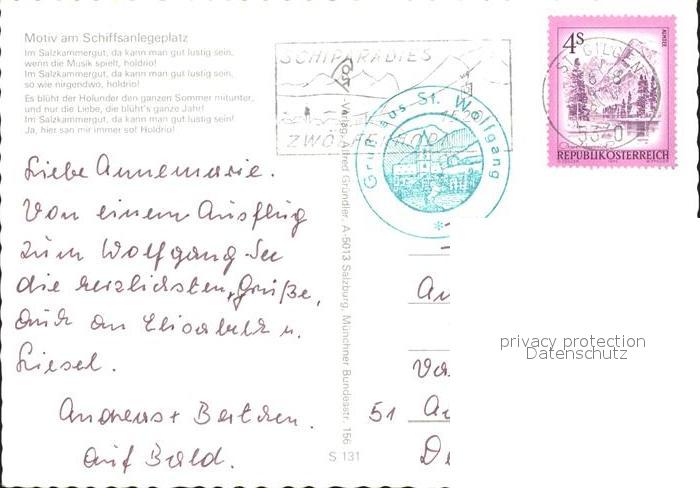 Motiv am Schiffsanlegeplatz
Im Salzkammergut, da kann man gut lustig sein,
wenn die Musik spielt, holdrio!
Im Salzkammergut, da kann man gut lustig sein,
so wie nirgendwo, holdrio!
Es blüht der Holunder den ganzen Sommer mitunter,
und nur die Liebe, die blüht's ganze Jahr!
Im Salzkammergut, da kann man gut lustig sein!
Ja, hier san mir immer so! Holdrio!
SCHIPARADIES
POST
Gruß aus St. Wolfgang
*
4S
ALMSEE
REPUBLIK ÖSTERREICH
ST. GILGEN
5340
Liebe Annemarie.
Von einem Ausflug
zum Wolfgang-See
die herzlichsten Grüße,
auch an Elisabeth u.
Liesel.
Andreas + Bärbchen.
auf Bald.
Verlag Alfred Gründler, A-5013 Salzburg, Münchner Bundesstr. 156
S 131
51
privacy protection
Datenschutz